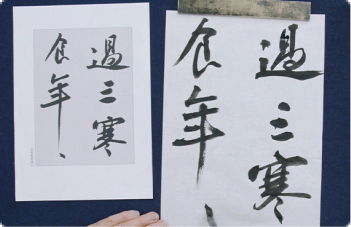 過三寒
食年〻
過三寒
食年〻